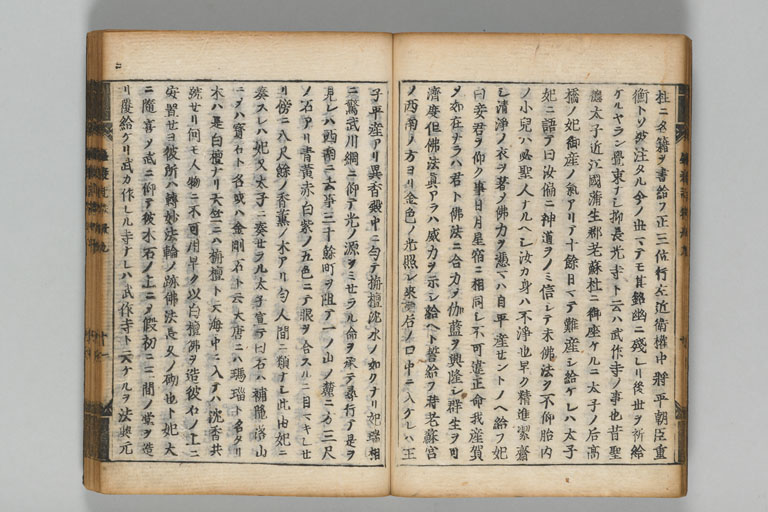 柱ニ名籍ヲ書給フ正三位行左近衛權中將平朝臣重
衡トソ被注タル今ノ世マテモ其銘幽ニ殘レリ後世ヲ祈給
ケルヤラン覺束ナシ抑長光寺ト云ハ武作寺ノ事也昔聖
德太子近江國蒲生郡老蘇杜ニ御座ケルニ太子ノ后高
橋ノ妃御産ノ氣アリテ十餘日マテ難産シ給ケレハ太子
妃ニ語テ曰汝偏ニ神道ヲノミ信シテ未佛法ヲ不仰胎内
ノ小兒ハ必聖人ナルヘシ汝カ身ハ不淨也早ク精進潔齋
シ清淨ノ衣ヲ著ノ佛力ヲ憑マハ自平産セントノヘ給フ妃
曰妾君ヲ仰ク事日月星宿ニ相同シ不可違正命我産賀
ヲ如在ナラハ君ト佛法ニ合力ノ伽藍ヲ興隆シ群生ヲ可
濟度但佛法眞アラハ威力ヲ示シ給ヘト誓給フ時老蘇宮
ノ西南ノ方ヨリ金色ノ光照シ來テ后ノ口中ニ入ケレハ王
子平産アリ異香殿中ニ匂テ栴檀沈水ノ如クナリ妃瑞相
ニ驚武川綱ニ仰テ光ノ源ヲミセラル命ヲ承テ尋行テ是ヲ
見レハ西南ニ去事三十餘町ヲ阻テ一ノ山ノ麓ニ方三尺
ノ石アリ青黄赤白紫ノ五色ニテ眼ヲ合スルニ目マキレセ
リ傍ニ八尺餘ノ香薫ノ木アリ匂人間ニ類ナシ此由妃ニ
奏スレハ妃又太子ニ奏セラル太子宣テ曰石ハ補陀落山
ニテハ寶石ト名或ハ金剛石ト云大唐ニハ瑪瑙ト名タリ
木ハ是白檀ナリ天竺ニハ栴檀ト云海中ニ入テハ沈香共
號セリ何モ人物ニ不可用早ク以白檀佛ヲ造彼石ノ上ニ
安置セヨ彼所ハ轉妙法輪ノ跡佛法長久ノ砌也ト妃大
ニ隨喜ヲ武ニ仰テ彼木石ノ上ニヲ假初ニ三間ノ堂ヲ造
リ覆給ケリ武カ作レル寺ナレハ武作寺ト云ケルヲ法興元